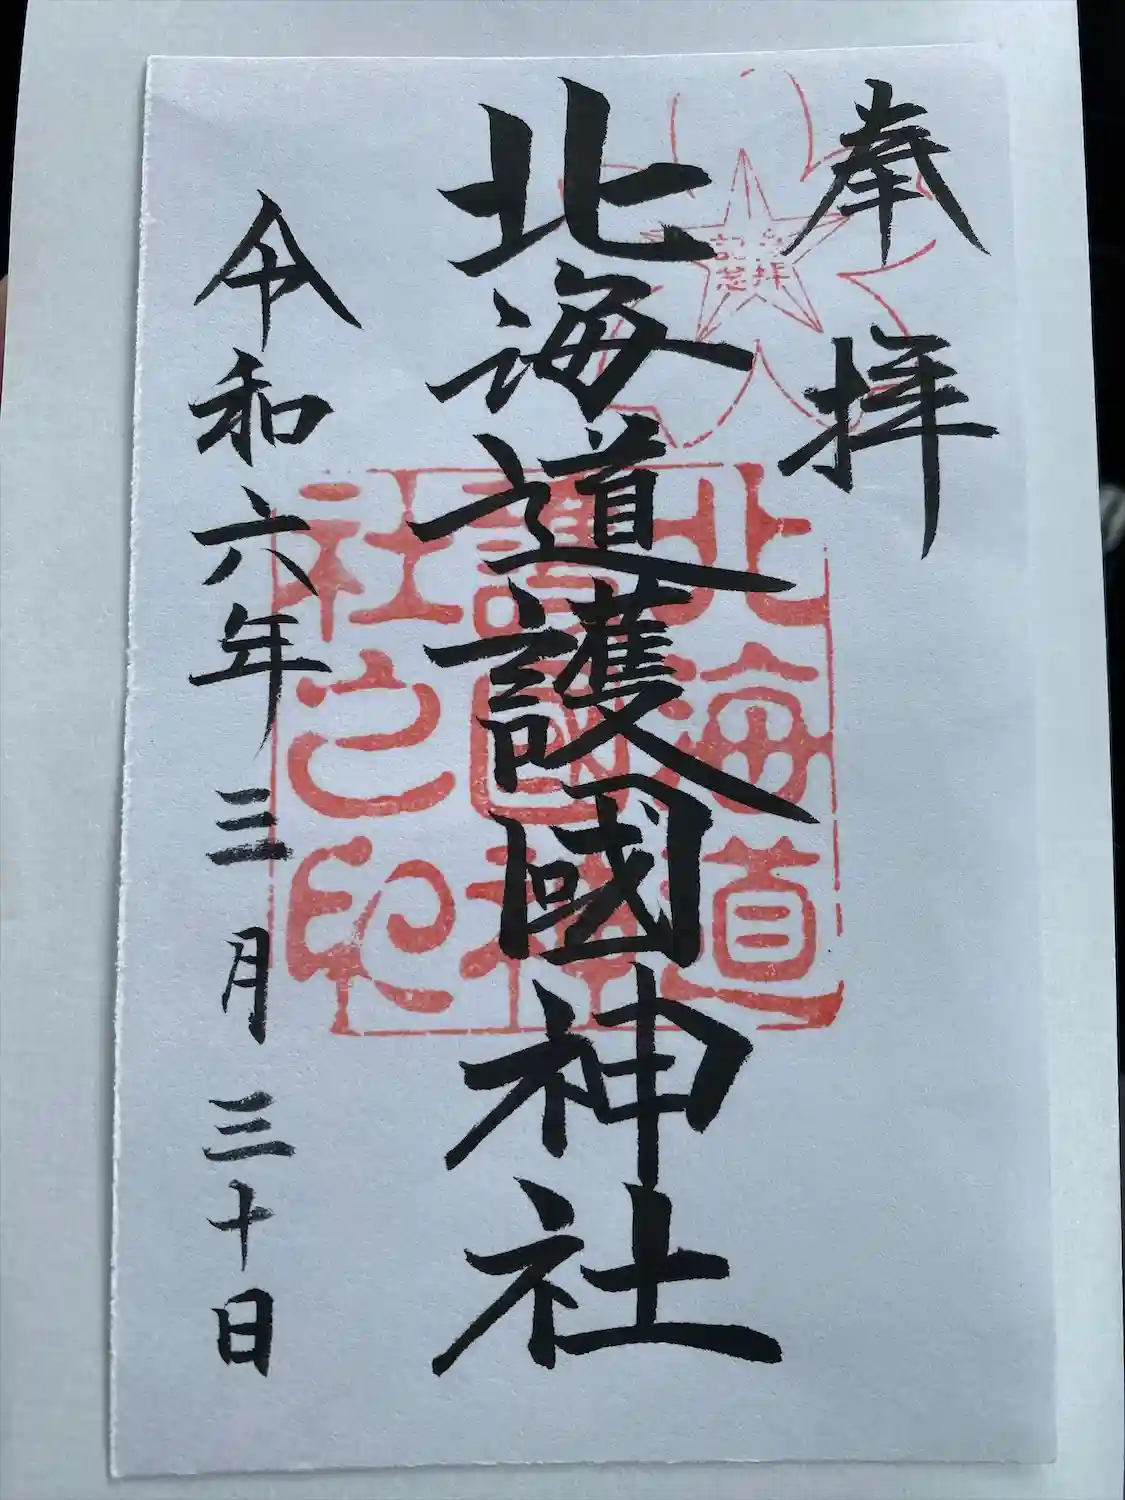 奉拝
参拝
記念
北海道護國神社
北海道
護國神
社之印
令和六年三月三十日